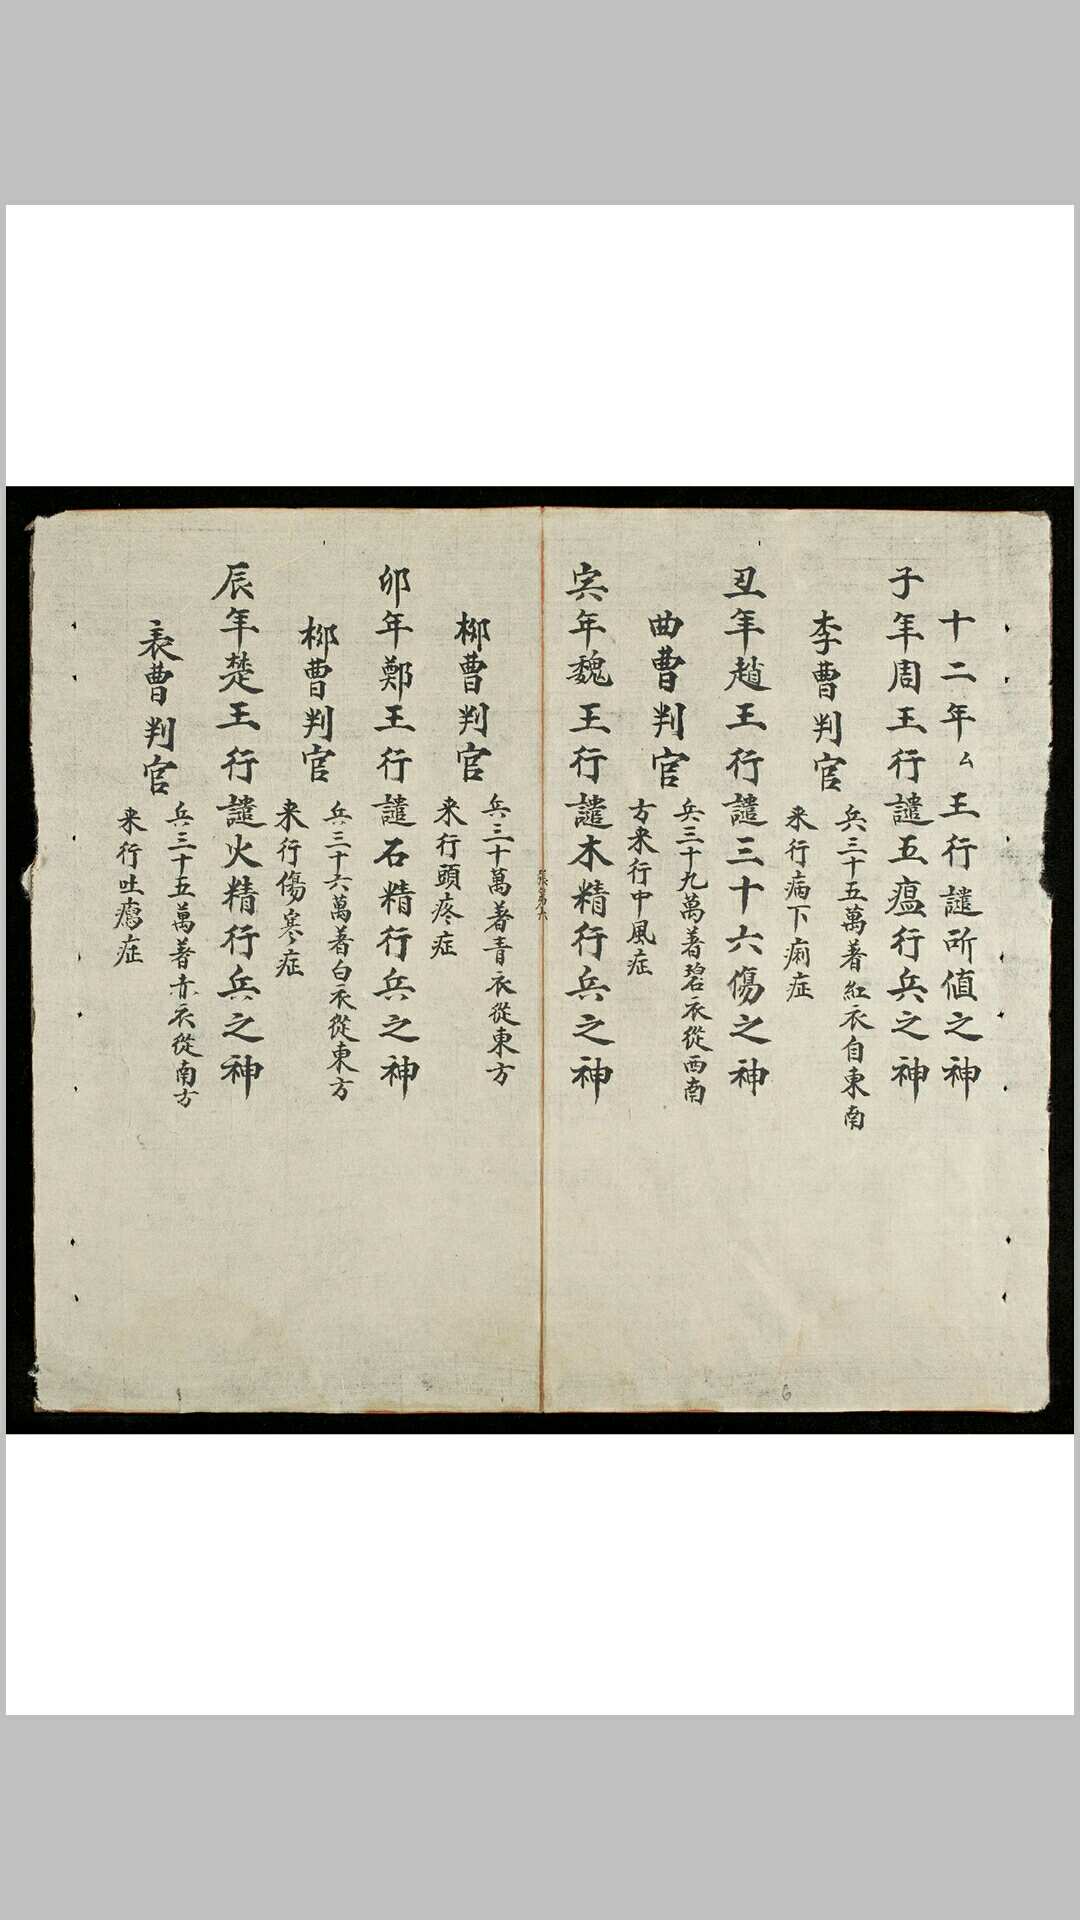 十二年厶王行譴所値之神
子年周王行譴五瘟行兵之神
李曹判官
兵三十五萬著紅衣自東南
来行病下痢症
丑年趙王行譴三十六傷之神
曲曹判官
兵三十九萬著碧衣從西南
方来行中風症
寅年魏王行譴木精行兵之神
柳曹判官
兵三十萬著青衣從東方
来行頭疼症
卯年鄭王行譴石精行兵之神
柳曹判官
兵三十六萬著白衣從東方
来行傷寒症
辰年楚王行譴火精行兵之神
曹判官
兵三十五萬著赤衣從南方
来行吐症
6